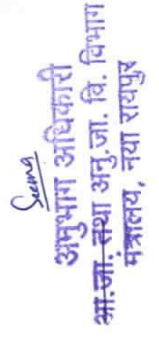 Seema
अनुभाग अधिकारी
आ.जा. तथा अनु.जा. वि. विभाग
मंत्रालय, नया रायपुर